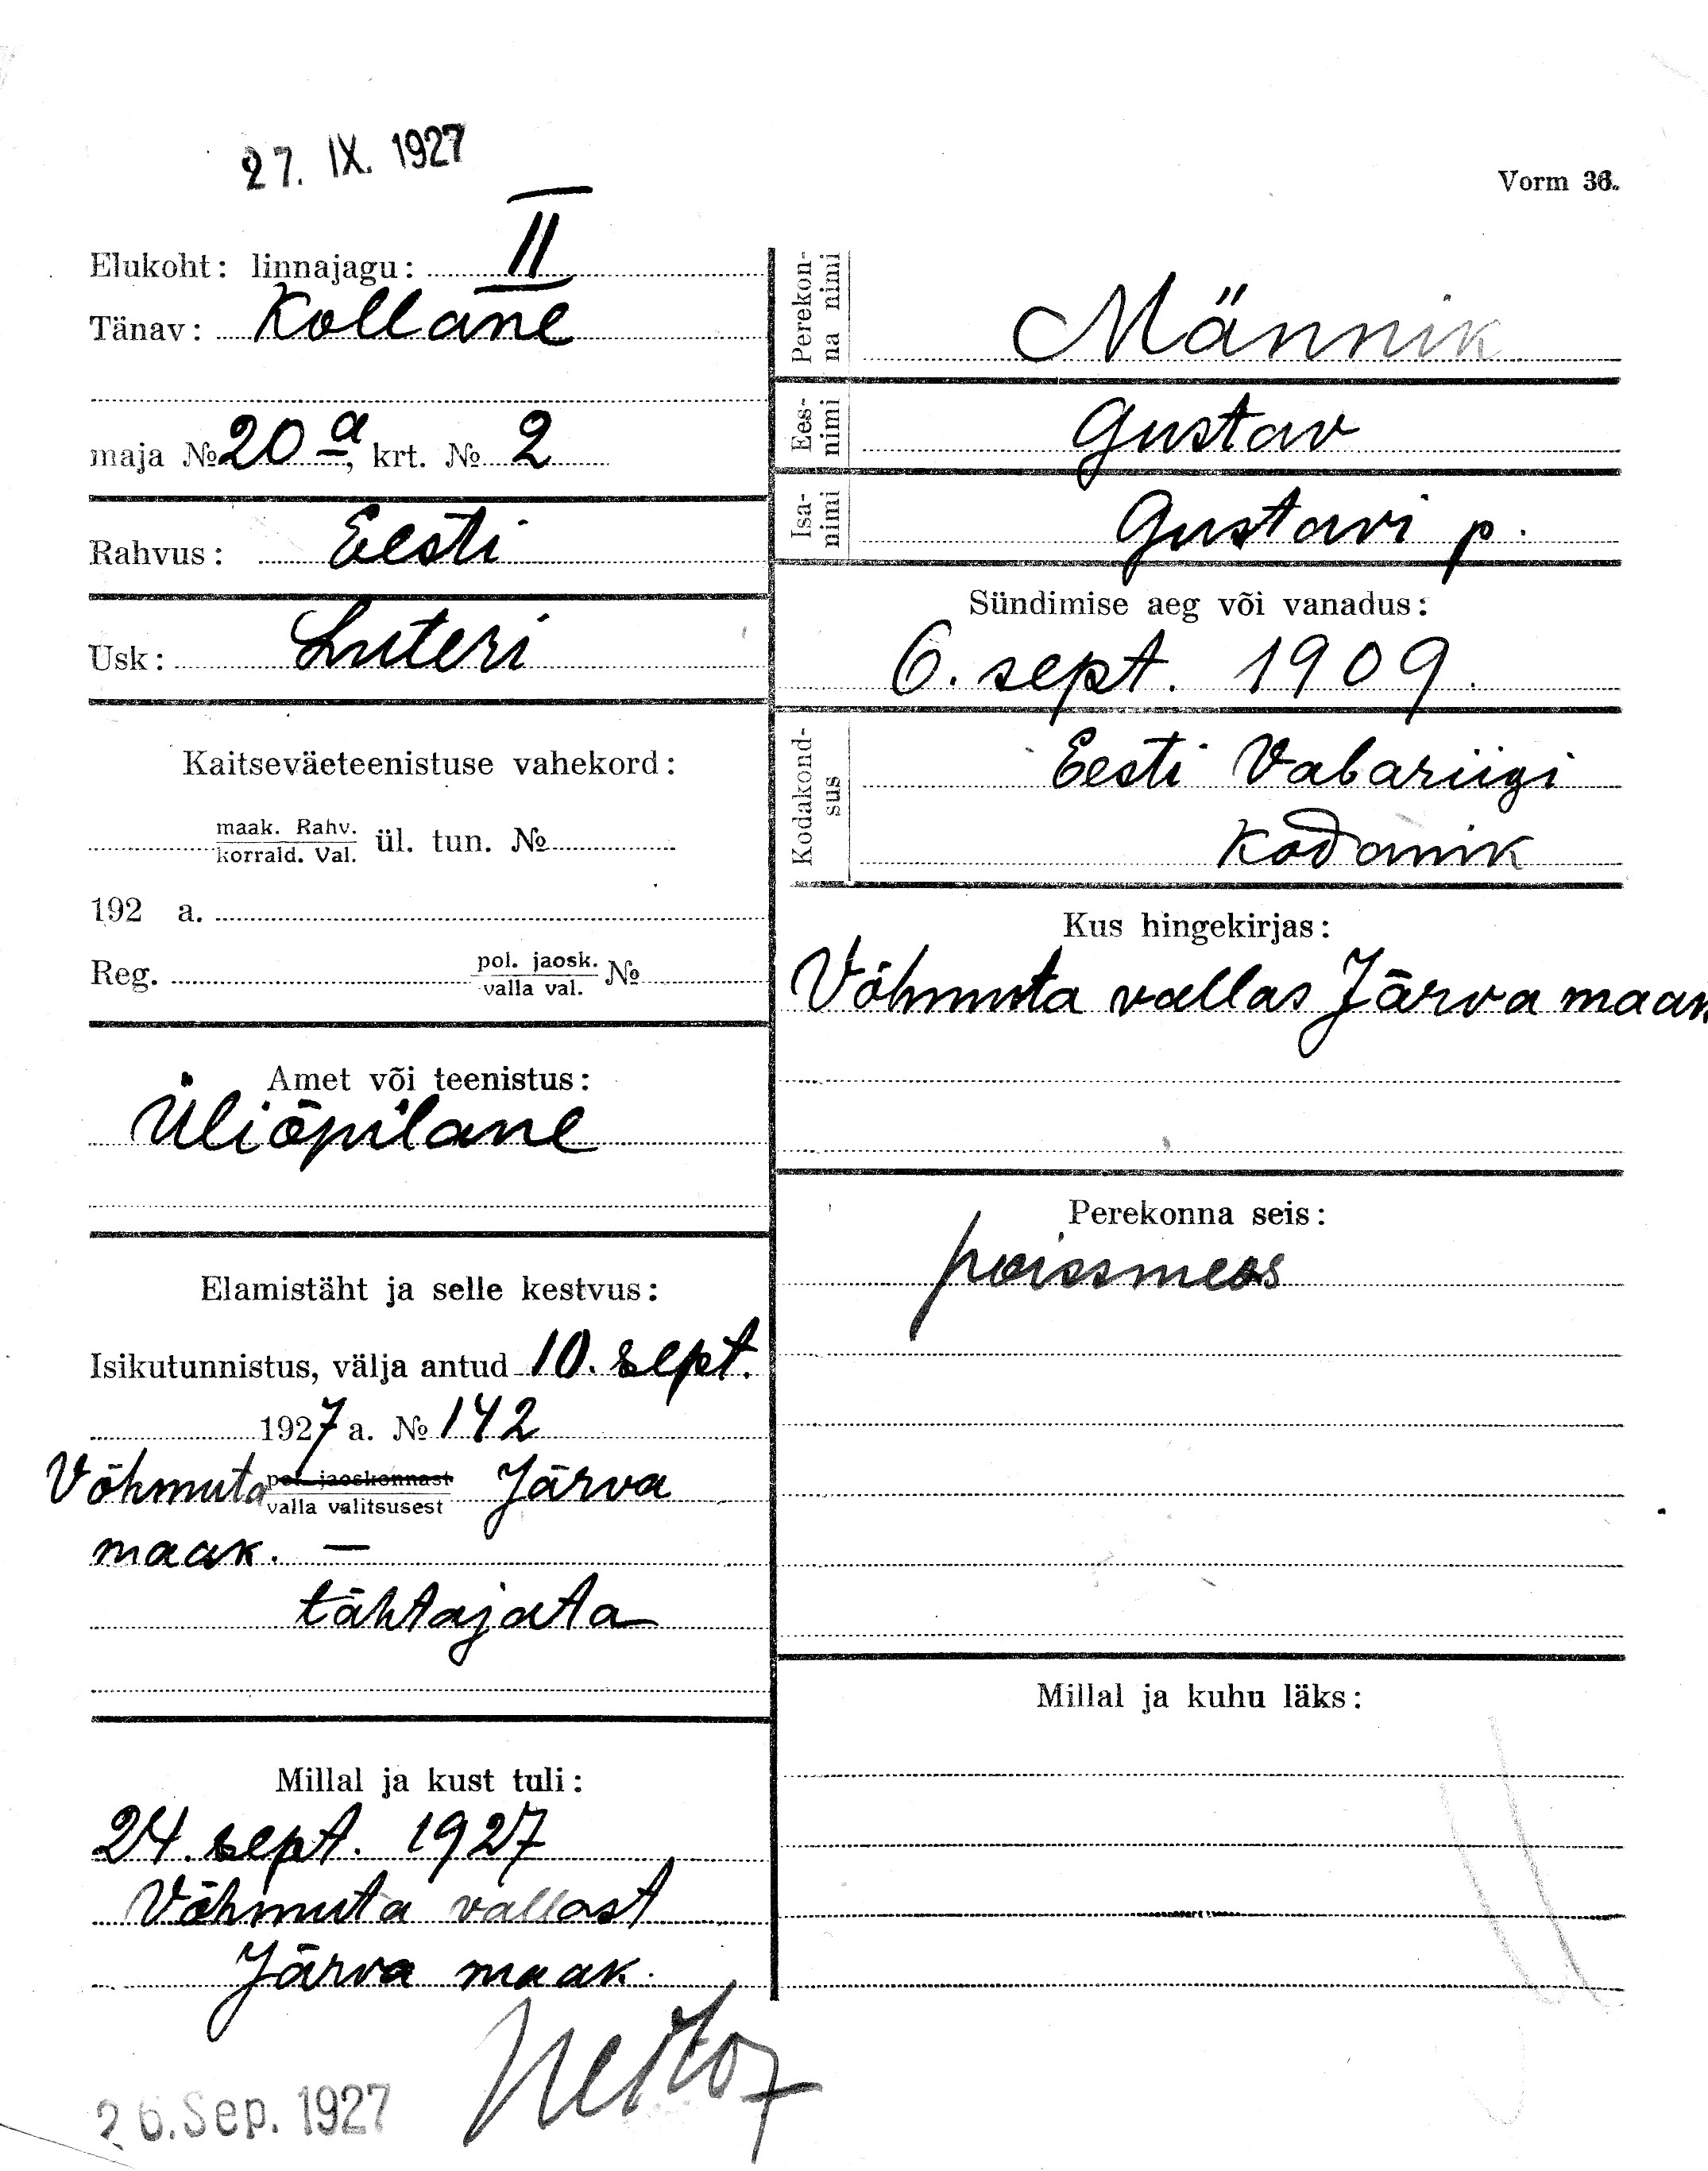 27. IX. 1927
Vorm 36.
Elukoht: linnajagu: II
Tänav: Kollane
maja № 20 a, krt. № 2
Rahvus: Eesti
Usk: Luteri
Kaitseväeteenistuse vahekord:
maak. Rahv.
korrald. Val. ül. tun. №
192 a.
Reg. pol. jaosk. №
valla val.
Amet või teenistus:
Üliõpilane
Elamistäht ja selle kestvus:
Isikutunnistus, välja antud 10. sept.
1927 a. № 142
Võhmuta pol. jaoskonnast Järva
valla valitsusest
maak. —
tähtajata
Millal ja kust tuli:
24. sept. 1927
Võhmuta vallast
Järva maak.
26. Sep. 1927
Perekon-
na nimi
Männik
Ees-
nimi
Gustav
Isa-
nimi
Gustavi p.
Sündimise aeg või vanadus:
6. sept. 1909.
Kodakond-
sus
Eesti Vabariigi
kodanik
Kus hingekirjas:
Võhmuta vallas Järva maak
Perekonna seis:
poissmees
Millal ja kuhu läks: